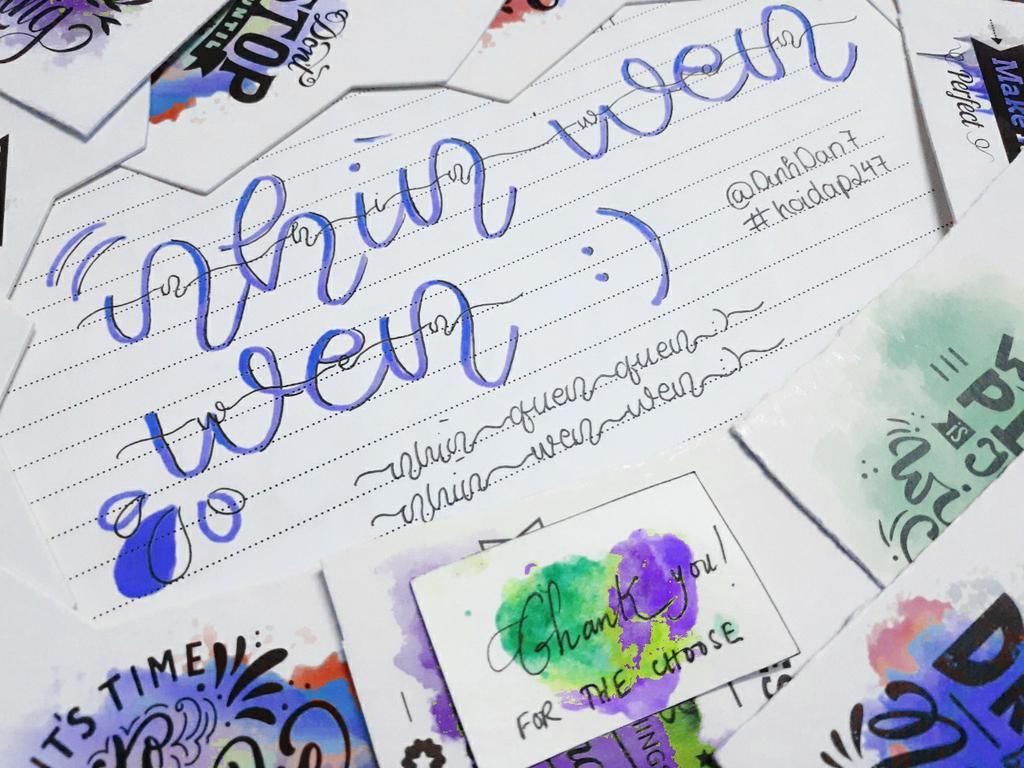 UNTIL
STOP
Don't
Make
Perfect
nhin wen
@DinhDan7
#hoidap247
wen :)
go
nhin quen quen :)
nhin wen wen :)
IS
IT'S TIME
Thank you!
FOR THE CHOOSE